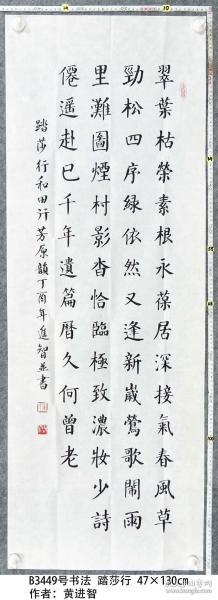 翠葉枯榮素根永葆居深接氣春風草
勁松四序綠依然又逢新歲鶯歌鬧雨
里灘圖煙村影杳恰臨極致濃妝少詩
僊遥赴已千年遺篇曆久何曾老
踏莎行和田汙芳原韻丁酉年進智並書
B3449号书法 踏莎行 47×130cm
作者：黄进智